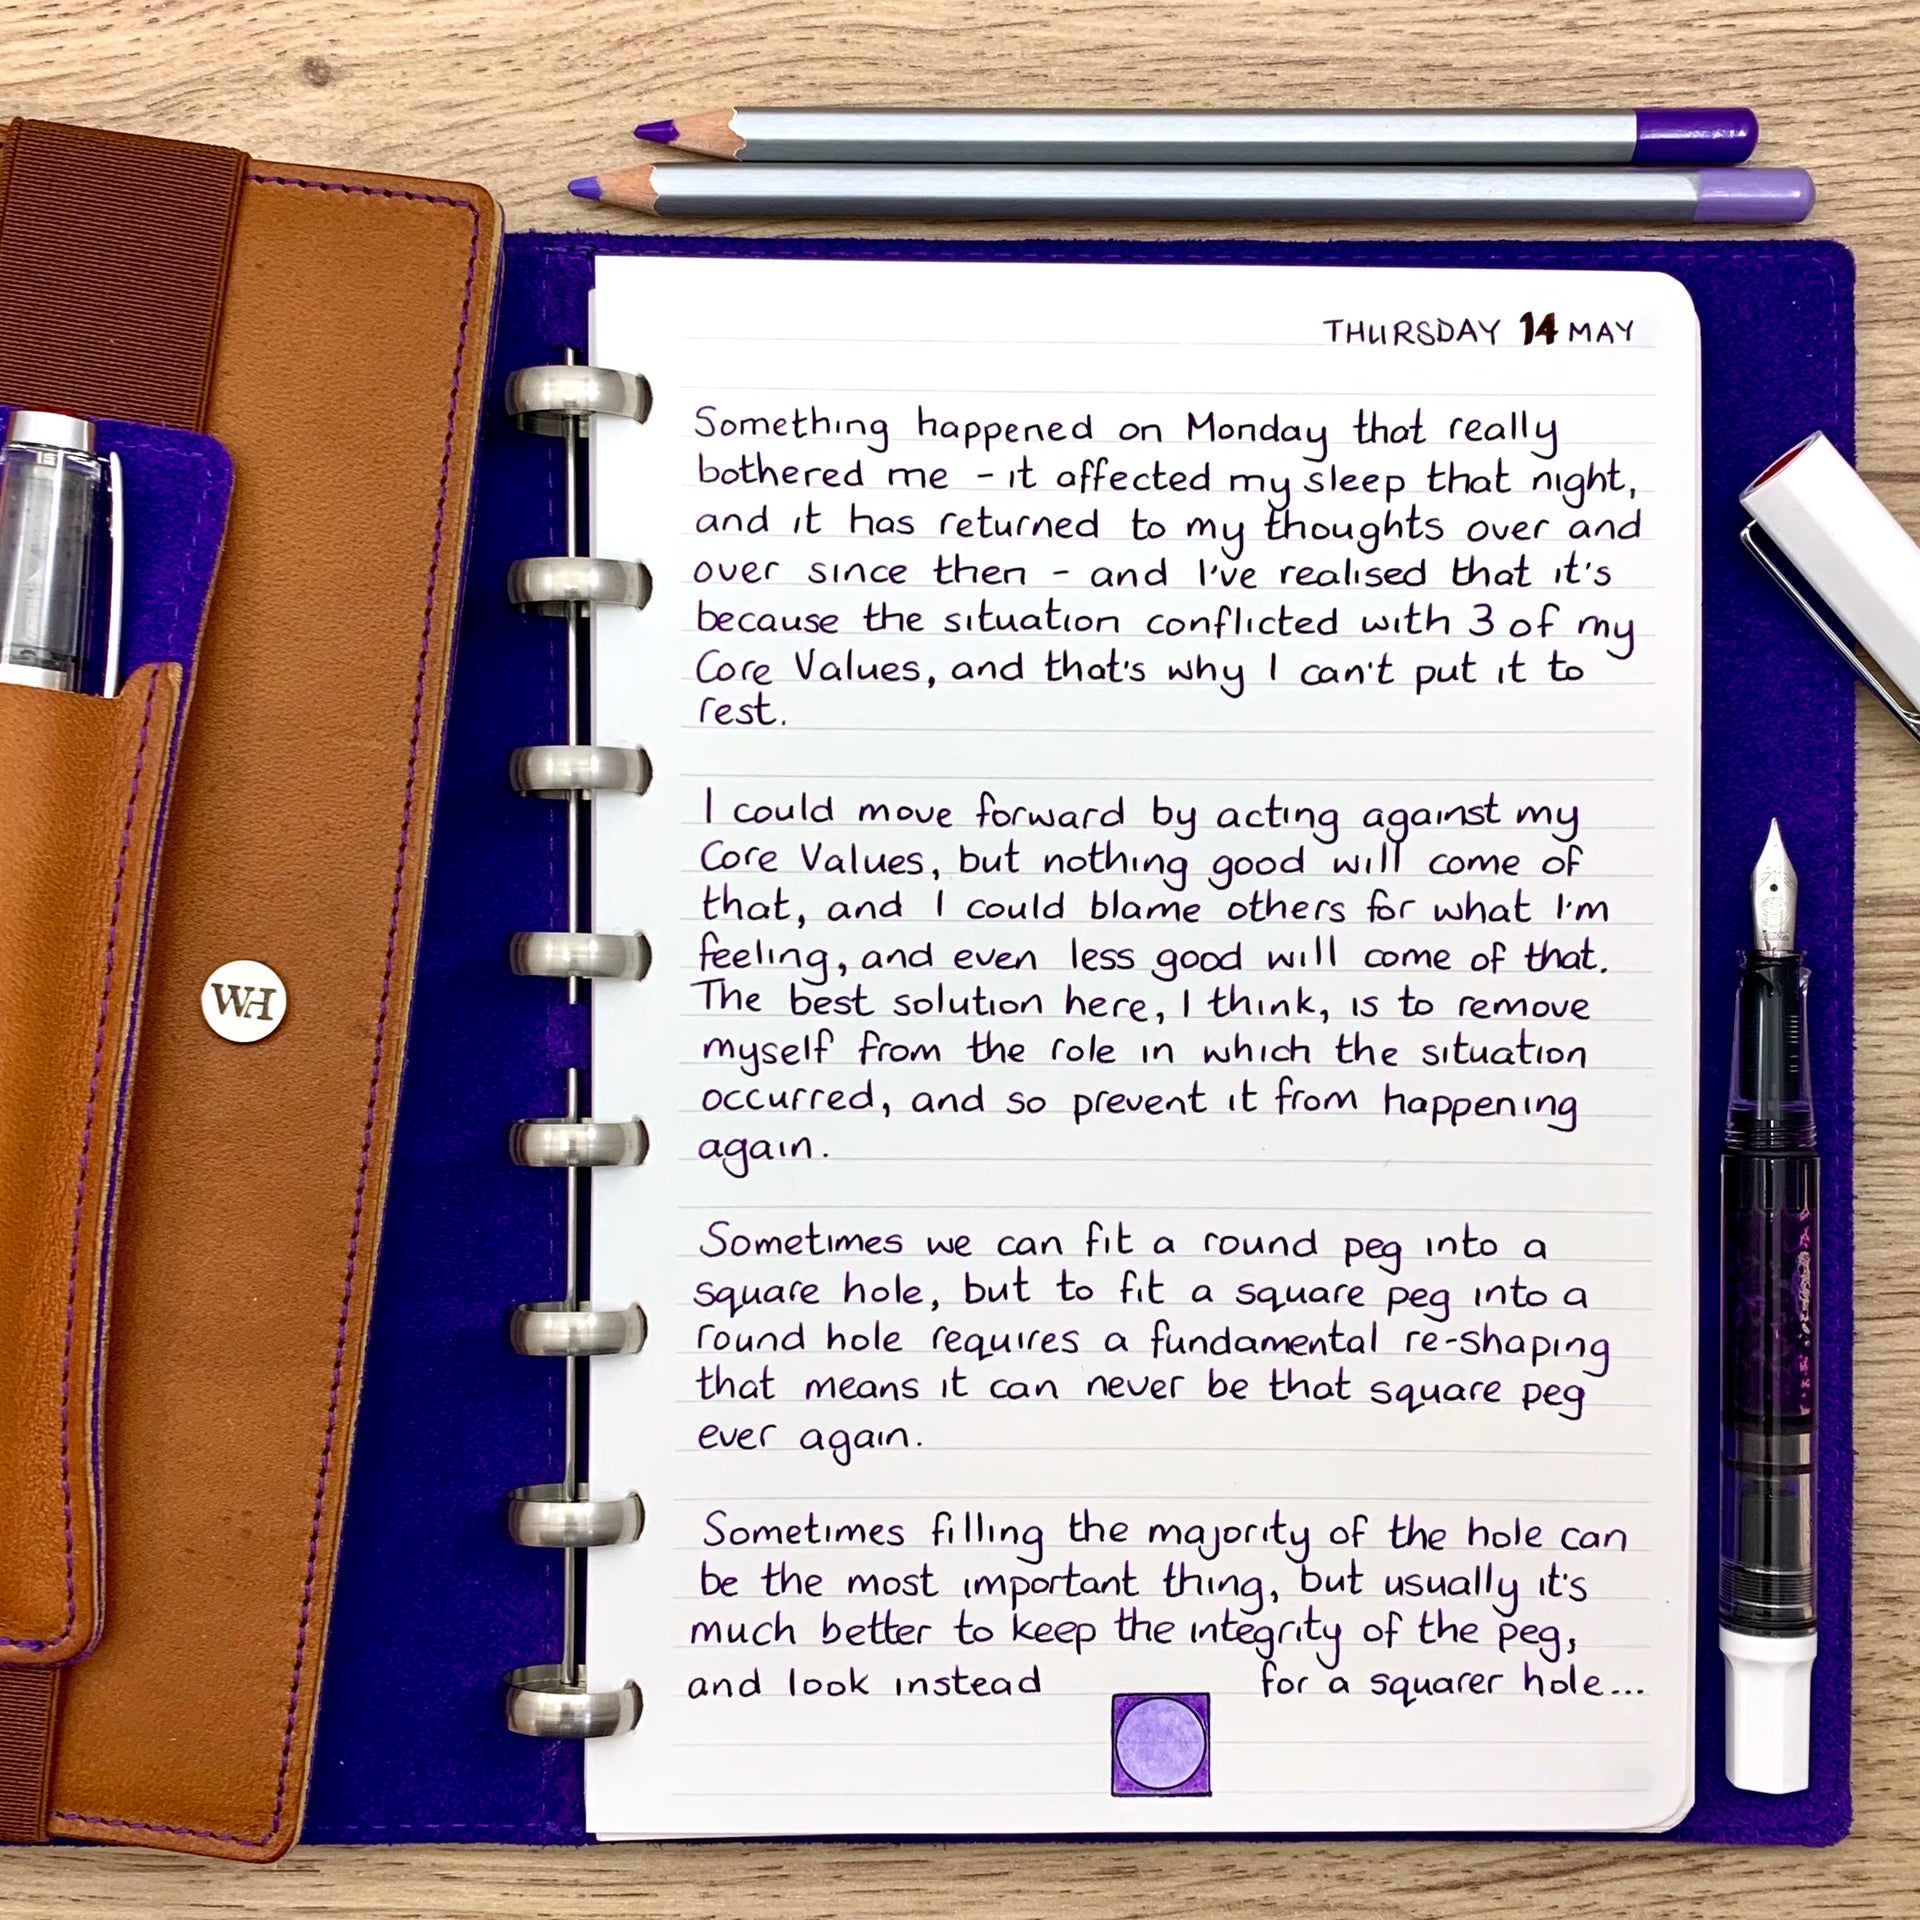 THURSDAY 14 MAY
Something happened on Monday that really
bothered me - it affected my sleep that night,
and it has returned to my thoughts over and
over since then - and I've realised that it's
because the situation conflicted with 3 of my
Core Values, and that's why I can't put it to
rest.
I could move forward by acting against my
Core Values, but nothing good will come of
that, and I could blame others for what I'm
feeling, and even less good will come of that.
The best solution here, I think, is to remove
myself from the role in which the situation
occurred, and so prevent it from happening
again.
Sometimes we can fit a round peg into a
square hole, but to fit a square peg into a
round hole requires a fundamental re-shaping
that means it can never be that square peg
ever again.
Sometimes filling the majority of the hole can
be the most important thing, but usually it's
much better to keep the integrity of the peg,
and look instead for a squarer hole...
WH